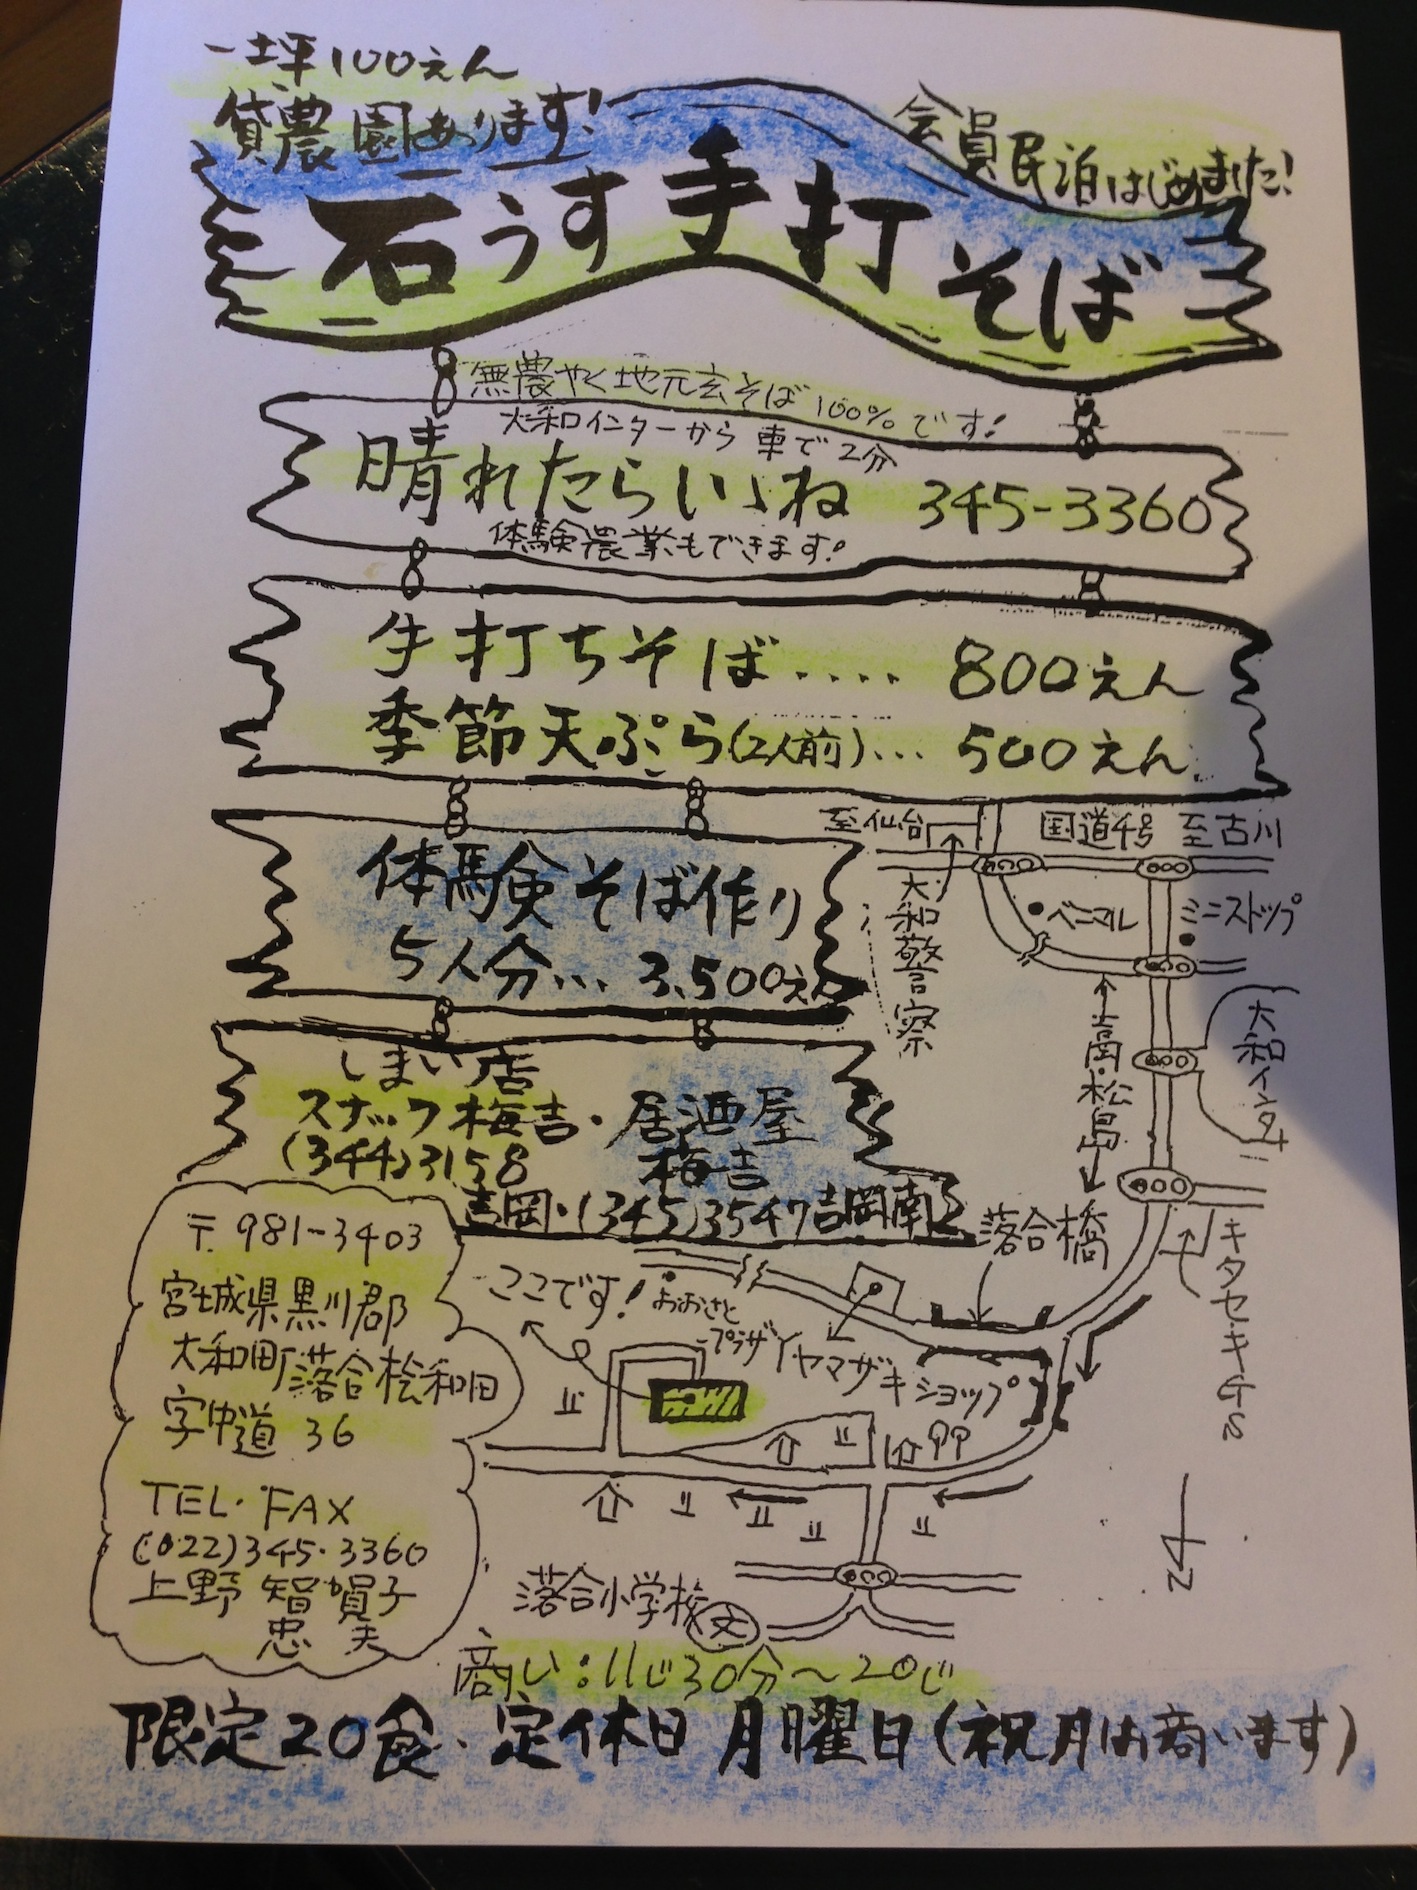 一坪100えん
貸農園あります!
会員民泊はじめました!
石うす手打そば
無農やく地元玄そば100%です!
大和インターから車で2分
晴れたらいいね 345-3360
体験農業もできます!
手打ちそば.... 800えん
季節天ぷら(2人前)... 500えん
体験そば作り
5人分... 3,500えん
しまい店
スナック梅吉・居酒屋
(344)3158 梅吉
吉岡・(345)3547吉岡南
至仙台
国道4号 至古川
大和警察
ベニマル
ミニストップ
大和インター
至松島
落合橋
キタセキGS
ここです!
おおさと
プラザ
Yヤマザキショップ
〒981-3403
宮城県黒川郡
大和町落合桧和田
字中道 36
TEL・FAX
(022)345・3360
上野 智賀子
忠夫
落合小学校
文
N
商い:11じ30分〜20じ
限定20食・定休日 月曜日(祝月は商います)